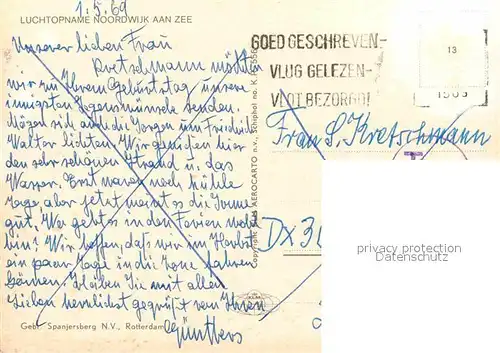 1.5.69
LUCHTOPNAME NOORDWIJK AAN ZEE
Unserer lieben Frau
Kretschmann möchten
wir zu Ihrem Geburtstag unsere
innigsten Segenswünsche senden.
Mögen sich auch die Sorgen um Friedrich
Walter lichten. Wir genießen hier
den sehr schönen Strand u. das
Wasser. Erst waren noch kühle
Tage, aber jetzt meint es die Sonne
gut. Wo geht es in den Ferien wohl
hin? Wir hoffen, daß wir im Herbst
ein paar Tage in die Zone fahren
können. Bleiben Sie mit allen
Lieben herzlichst gegrüßt von Ihren
Günthers
Gebr. Spanjersberg N.V., Rotterdam
Copyright KLM AEROCARTO n.v., Schiphol no. K
GOED GESCHREVEN-
VLUG GELEZEN-
VLOT BEZORGD!
13
1969
Frau L. Kretschmann
Dx 31
privacy protection
Datenschutz